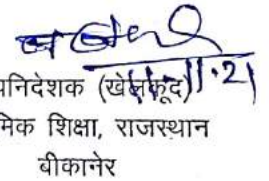 पनिदेशक (खेलकूद)
मिक शिक्षा, राजस्थान
बीकानेर